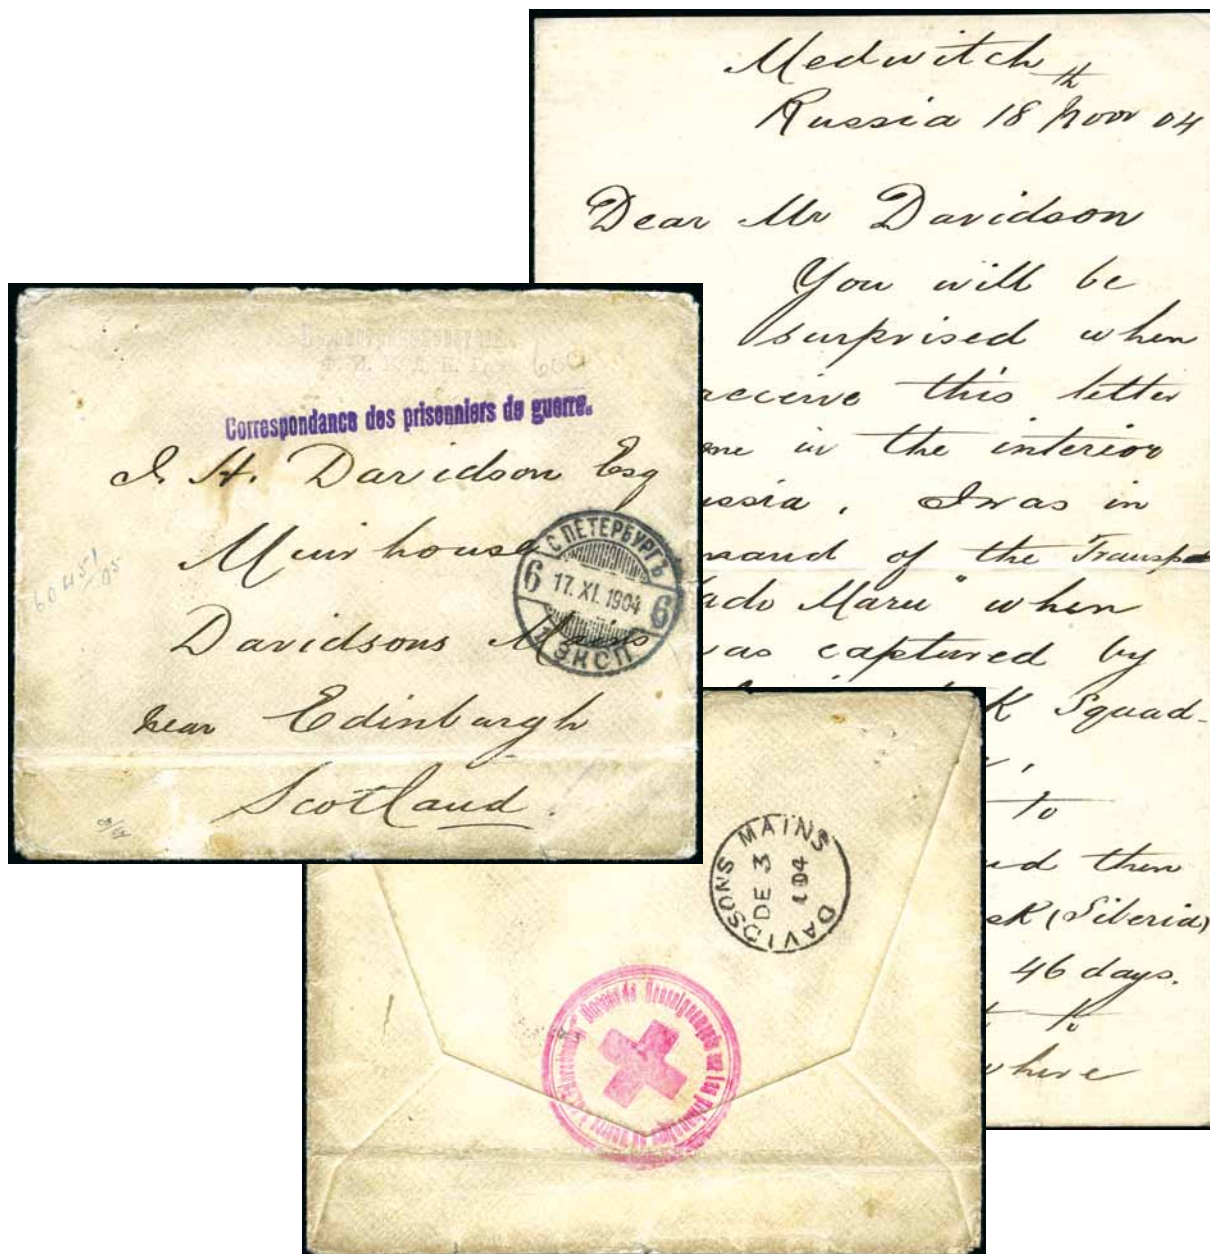 Medwitch
Russia 18th Novr 04
Dear Mr Davidson
You will be
surprised when
receive this letter
me in the interior
ussia, I was in
mand of the Transp
ado Maru" when
was captured by
K Squad-
to
nd then
sk (Siberia)
46 days.
to
where
604
Correspondance des prisonniers de guerre.
J. H. Davidson Esq
Muirhouse
Davidsons Mains
near Edinburgh
Scotland.
С ПЕТЕРБУРГЪ
6 17. XI. 1904 6
1 ЭКСП
DAVIDSONS MAINS
DE 3
04
Bureau de Renseignements sur les prisonniers de guerre